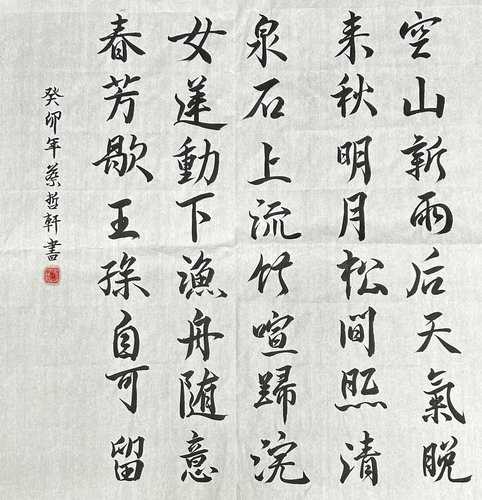 空山新雨后天氣晚
来秋明月松間照清
泉石上流竹喧歸浣
女蓮動下漁舟随意
春芳歇王孫自可留
癸卯年蔡哲軒書